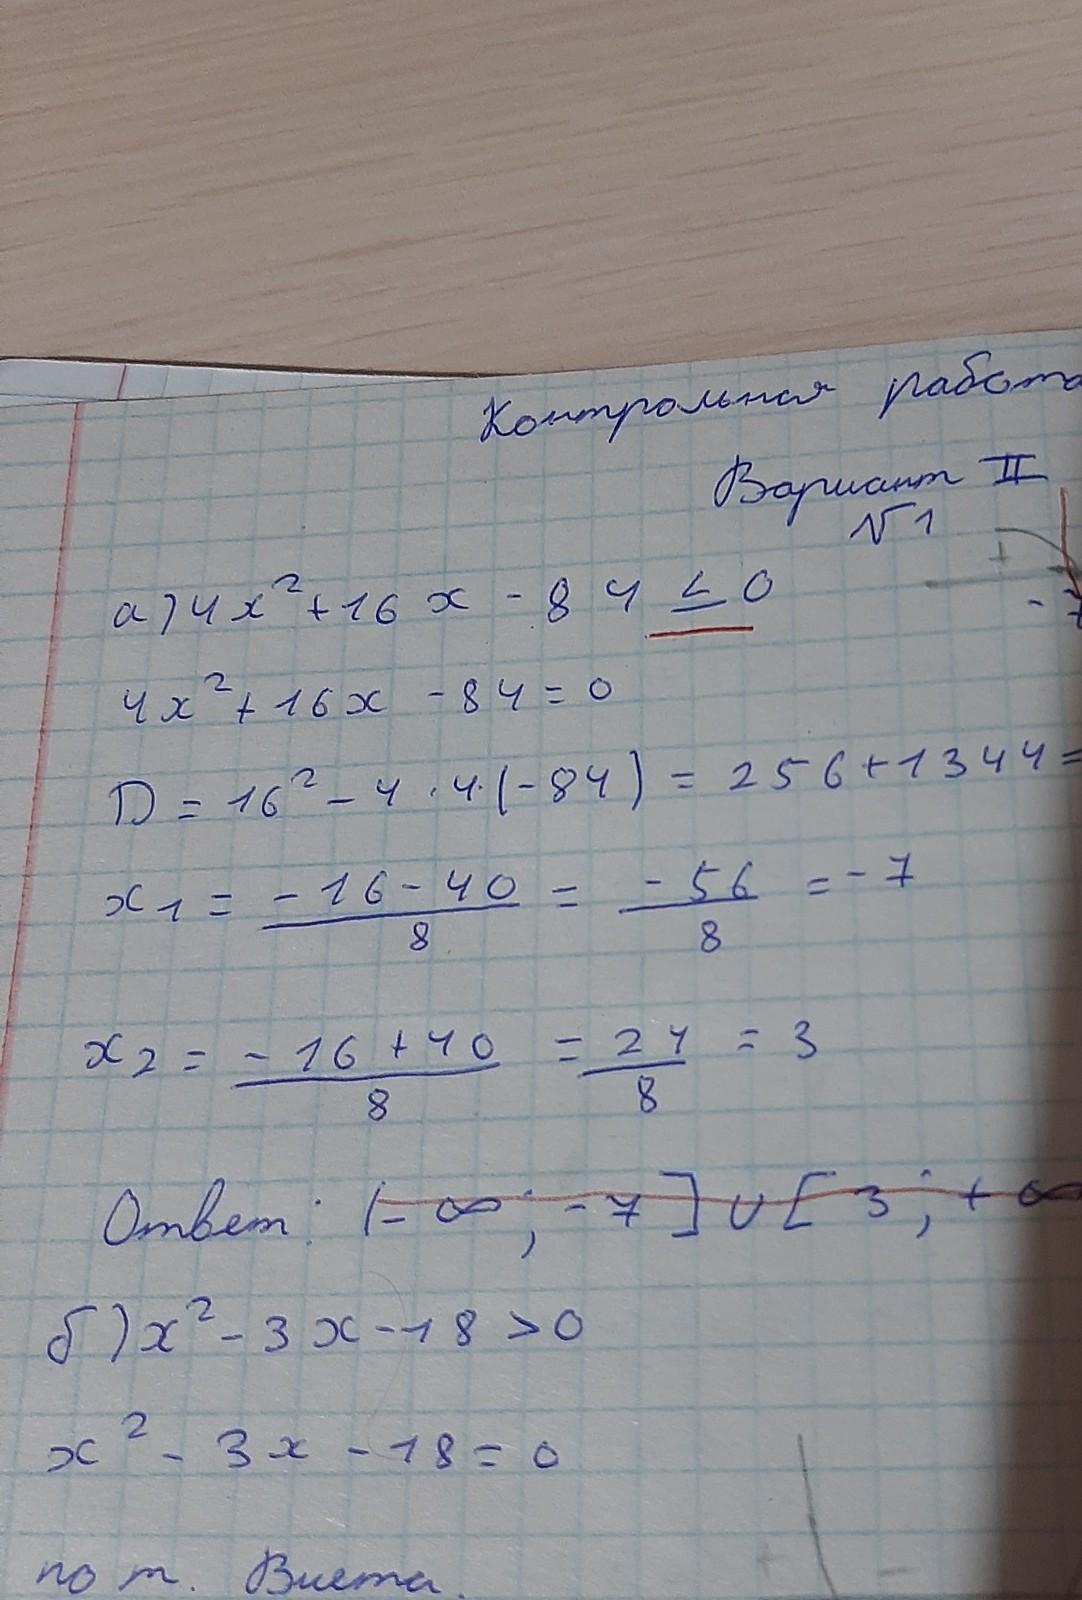 Контрольная работа
Вариант II
№1
а) 4x² + 16x - 84 ≤ 0
+
- 7
4x² + 16x - 84 = 0
D = 16² - 4 · 4 · (-84) = 256 + 1344 =
x₁ = (-16 - 40)/8 = -56/8 = -7
x₂ = (-16 + 40)/8 = 24/8 = 3
Ответ: (-∞; -7] ∪ [3; +∞
б) x² - 3x - 18 > 0
x² - 3x - 18 = 0
по т. Виета.
+ -